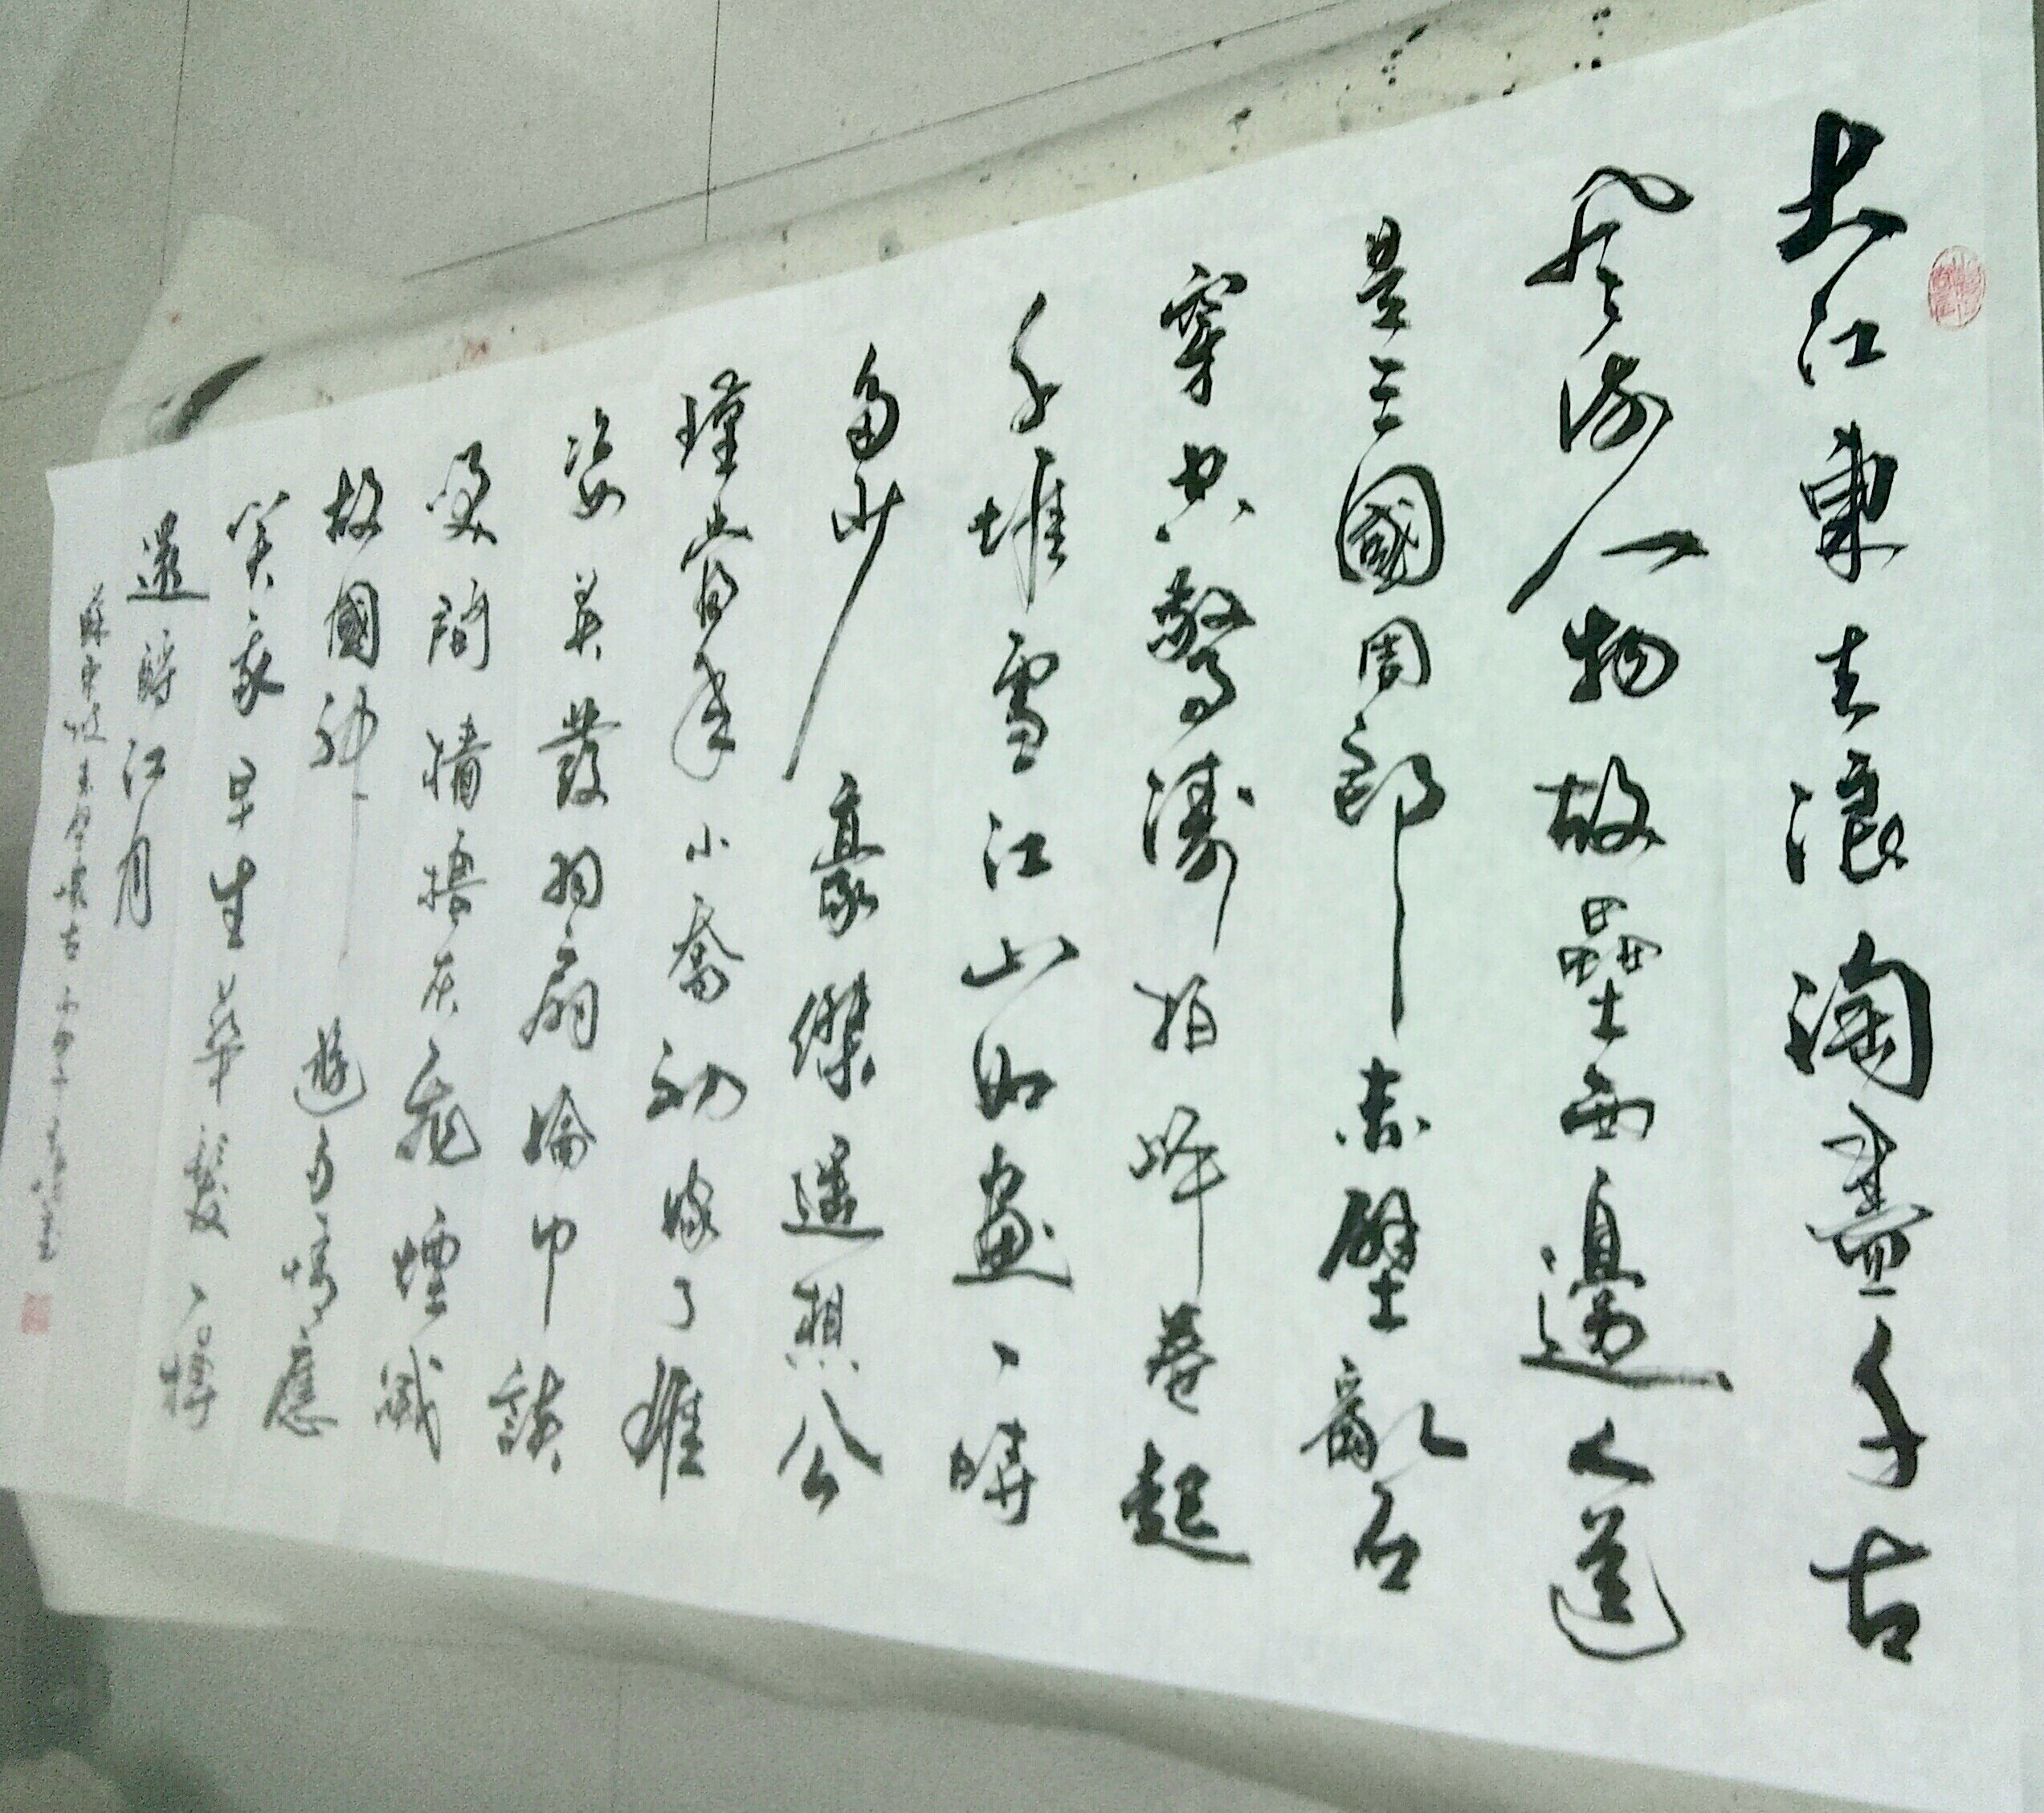 大江東去浪淘盡千古
風流人物故壘西邊人道
是三國周郎赤壁亂石
穿空驚濤拍岸卷起
千堆雪江山如畫一時
多少豪傑遙想公
瑾當年小喬初嫁了雄
姿英發羽扇綸巾談
笑間檣擼灰飛煙滅
故國神遊多情應
笑我早生華髮一樽
還酹江月
蘇東坡赤壁懷古